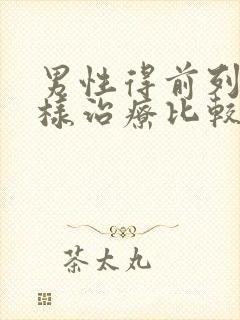 男性得前列
樣治療比較
茶太丸